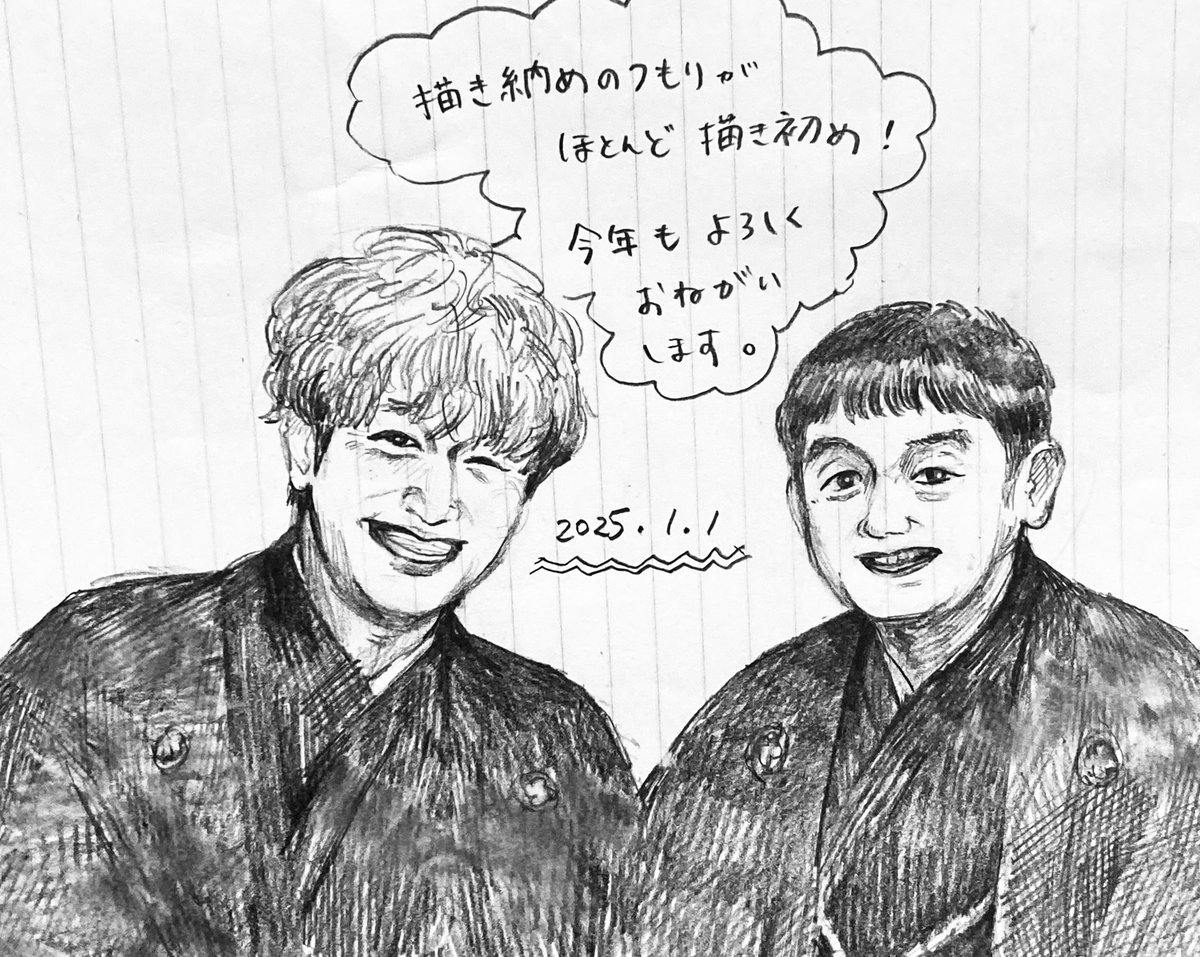 描き納めのつもりが
ほとんど描き初め！
今年もよろしく
おねがい
します。
2025.1.1